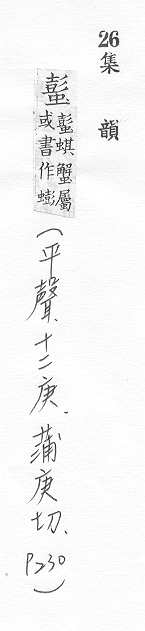 26
集韻
蟚
蟚蜞蟹屬
或書作蟛
(平聲、十二庚．蒲庚切．P230)